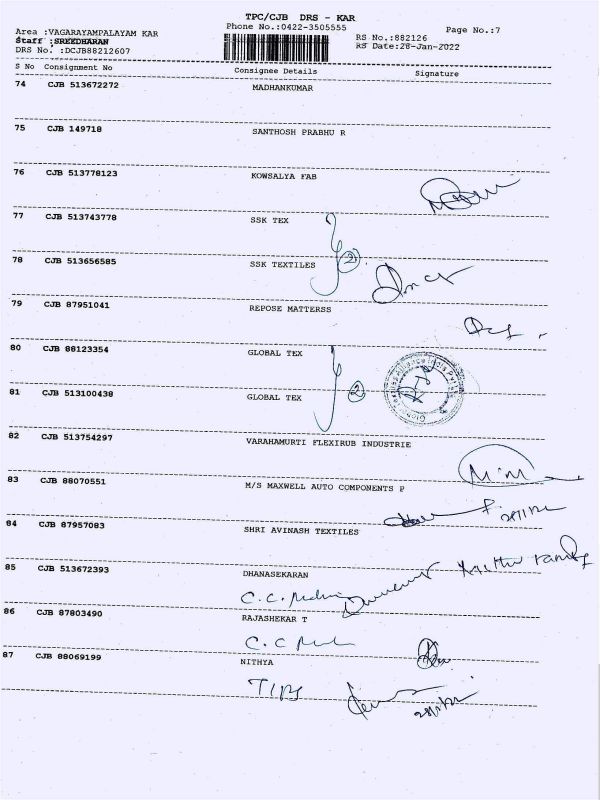 TPC/CJB DRS - KAR
Phone No.:0422-3505555
Area :VAGARAYAMPALAYAM KAR
Staff :SREEDHARAN
DRS No. :DCJB88212607
RS No.:882126
RS Date:28-Jan-2022
Page No.:7
S No Consignment No Consignee Details Signature
74 CJB 513672272 MADHANKUMAR
75 CJB 149718 SANTHOSH PRABHU R
76 CJB 513778123 KOWSALYA FAB
77 CJB 513743778 SSK TEX
78 CJB 513656585 SSK TEXTILES 2
79 CJB 87951041 REPOSE MATTERSS
80 CJB 88123354 GLOBAL TEX
81 CJB 513100438 GLOBAL TEX 2
82 CJB 513754297 VARAHAMURTI FLEXIRUB INDUSTRIE
83 CJB 88070551 M/S MAXWELL AUTO COMPONENTS P
84 CJB 87957083 SHRI AVINASH TEXTILES
28/1/22
85 CJB 513672393 DHANASEKARAN
C.C.
86 CJB 87803490 RAJASHEKAR T
C.C
87 CJB 88069199 NITHYA
28/1/22